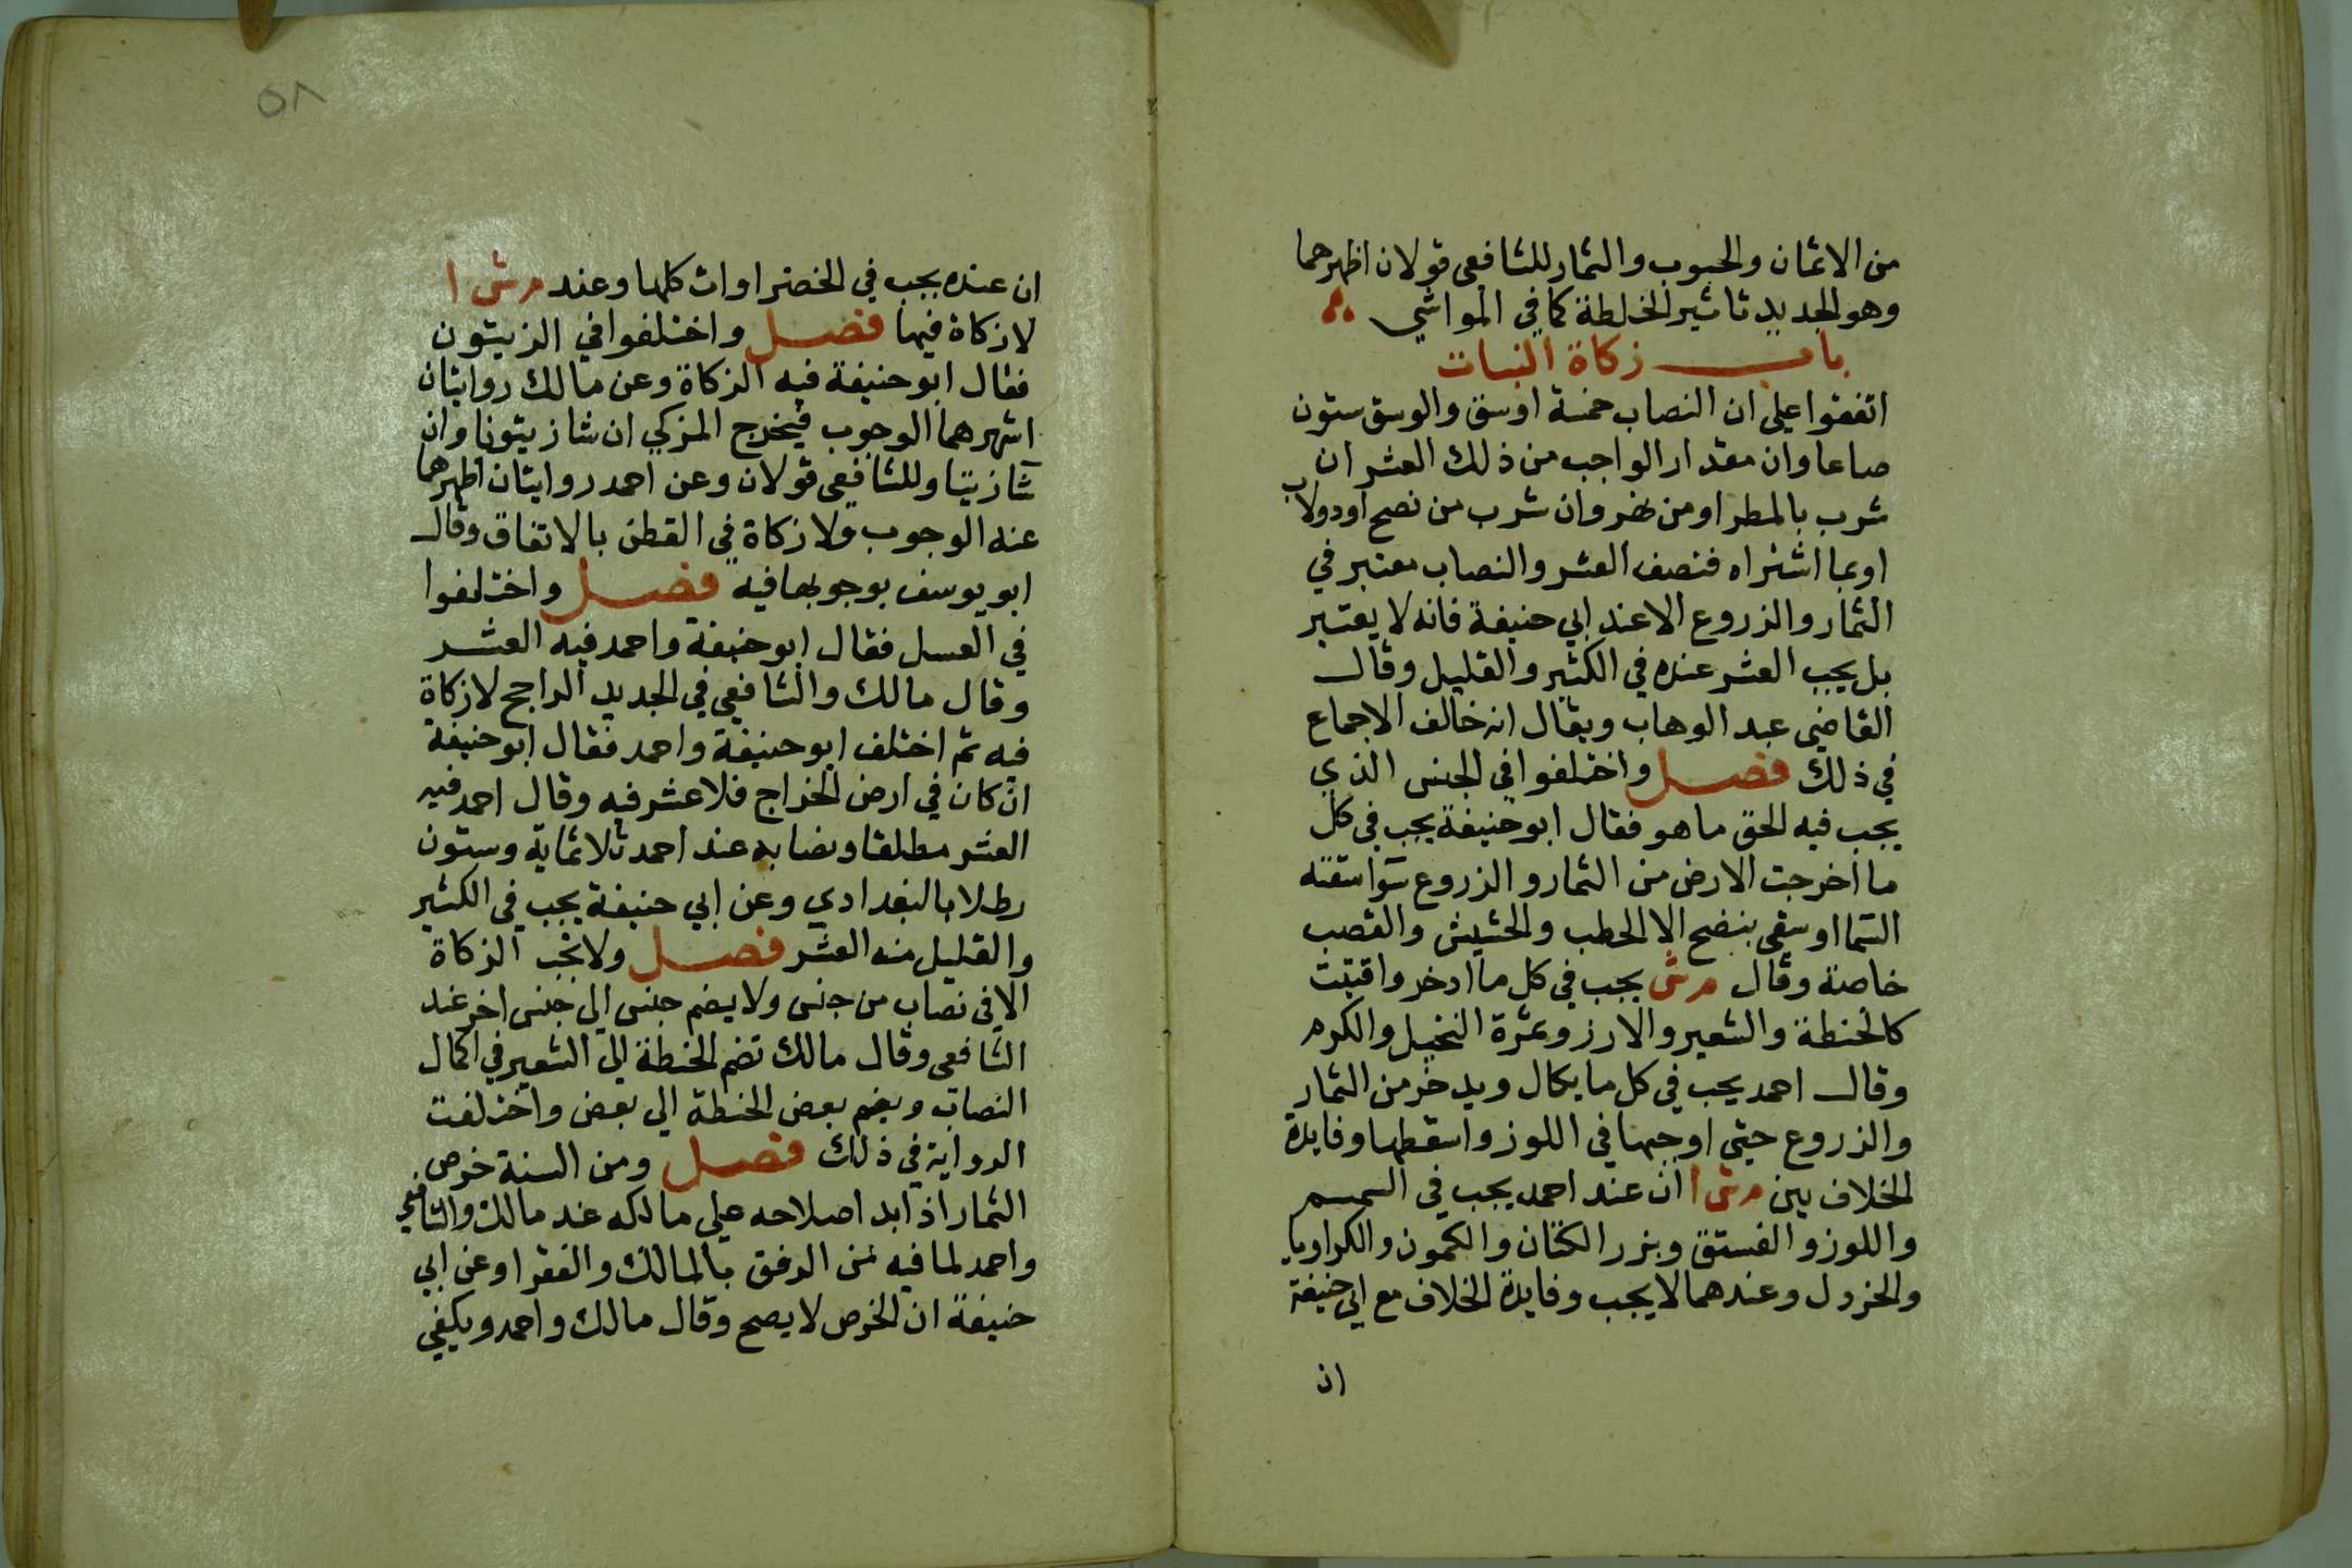 من الاثمان والحبوب والثمار للشافعي قولان اظهرهما
وهو الجديد تاثير الخلطة كما في المواشي
باب زكاة النبات
اتفقوا علي ان النصاب خمسة اوسق والوسق ستون
صاعا وان مقدار الواجب من ذلك العشر ان
شرب بالمطر او من نهر وان شرب من نضح او دولاب
او بما اشتراه فنصف العشر والنصاب معتبر في
الثمار والزروع الا عند ابي حنيفة فانه لا يعتبر
بل يجب العشر عنده في الكثير والقليل وقال
القاضي عبد الوهاب ويقال انه خالف الاجماع
في ذلك فصل واختلفوا في الجنس الذي
يجب فيه الحق ما هو فقال ابو حنيفة يجب في كل
ما اخرجت الارض من الثمار والزروع سوآ سقته
السما او سقي بنضح الا الحطب والحشيش والقصب
خاصة وقال مرش يجب في كل ما ادخر واقتيت
كالحنطة والشعير والارز وثمرة النخيل والكرم
وقال احمد يجب في كل ما يكال ويدخر من الثمار
والزروع حتي اوجبها في اللوز واسقطها وفايدة
الخلاف بين مرش ا ان عند احمد يجب في السمسم
واللوز والفستق وبزر الكتان والكمون والكراويا
والخردل وعندهما لا يجب وفايدة الخلاف مع ابي حنيفة
ان
٥٨
ان عنده يجب في الخضراوات كلها وعند مرش ا
لا زكاة فيها فصل واختلفوا في الزيتون
فقال ابو حنيفة فيه الزكاة وعن مالك روايتان
اشهرهما الوجوب فيخرج المزكي ان شا زيتونا وان
شآ زيتا وللشافعي قولان وعن احمد روايتان اظهرهما
عنه الوجوب ولا زكاة في القطن بالاتفاق وقال
ابو يوسف بوجوبها فيه فصل واختلفوا
في العسل فقال ابو حنيفة واحمد فيه العشر
وقال مالك والشافعي في الجديد الراجح لا زكاة
فيه ثم اختلف ابو حنيفة واحمد فقال ابو حنيفة
ان كان في ارض الخراج فلا عشر فيه وقال احمد فيه
العشر مطلقا ونصابه عند احمد ثلاثماية وستون
رطلا بالبغدادي وعن ابي حنيفة يجب في الكثير
والقليل منه العشر فصل ولا تجب الزكاة
الا في نصاب من جنس ولا يضم جنس الي جنس اخر عند
الشافعي وقال مالك تضم الحنطة الي الشعير في اكمال
النصاب ويضم بعض الحنطة الي بعض واختلفت
الرواية في ذلك فصل ومن السنة خرص
الثمار اذا بدا صلاحه علي مالكه عند مالك والشافعي
واحمد لما فيه من الرفق بالمالك والفقرا وعن ابي
حنيفة ان الخرص لا يصح وقال مالك واحمد ويكفي